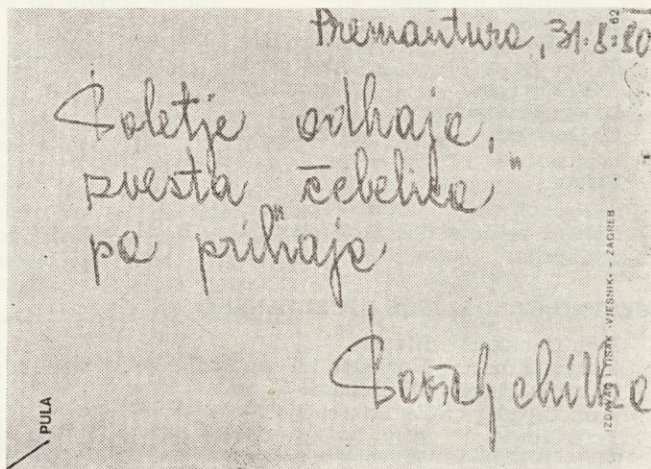 Premantura, 31.8.80
62
Poletje odhaja,
zvesta čebelica"
pa "prihaja
IZDAVAČ I TISAK »VJESNIK« - ZAGREB
PULA